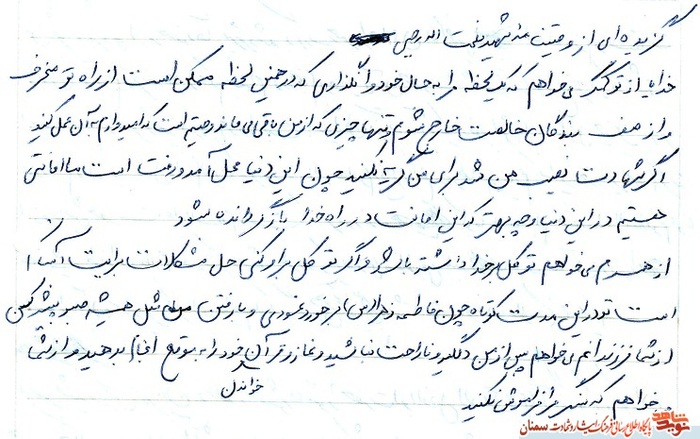 گزیده ای از وصیت نامه شهید نعمت اله رجبی
خدایا از تو کمک می خواهم که یک لحظه مرا به حال خود وا نگذاری که در همین لحظه ممکن است از راه تو منحرف
و از صف بندگان خالصت خارج شوم تنها چیزی که از من باقی می ماند وصیتم است که امیدوارم به آن عمل کنید
اگر شهادت نصیب من شد برای من گریه نکنید چون این دنیا محل آمد و رفت است ما امانتی
هستیم در این دنیا و چه بهتر که این امانت در راه خدا باز گردانده شود
از همسرم می خواهم توکل بر خدا داشته باشد و اگر توکل بر او کنی حل مشکلات برایت آسان
است تو در این مدت کوتاه چون فاطمه زهرا (س) برخورد نمودی و با رفتن من مثل همیشه صبر پیشه کن
از شما فرزندانم می خواهم پس از من دلگیر و ناراحت نباشید و نماز و قرآن خواندن خود را به موقع انجام بدهید و از شما
می خواهم که سنگر مرا فراموش نکنید
شاهد
نوید
پایگاه اطلاع رسانی فرهنگ ایثار و شهادت سمنان